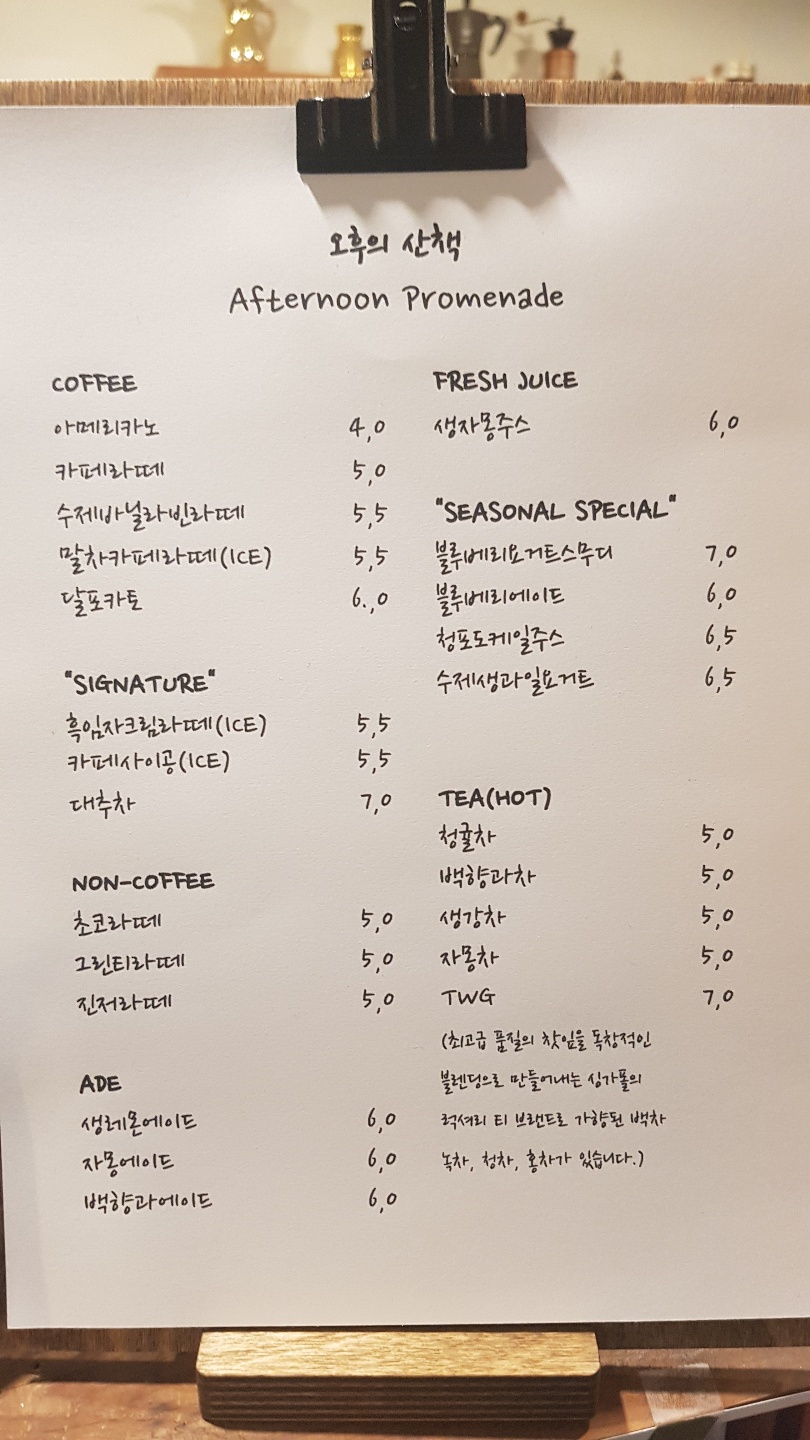 오후의 산책
Afternoon Promenade
COFFEE
아메리카노 4,0
카페라떼 5,0
수제바닐라빈라떼 5,5
말차카페라떼(ICE) 5,5
달포카토 6.,0
"SIGNATURE"
흑임자크림라떼(ICE) 5,5
카페사이공(ICE) 5,5
대추차 7,0
NON-COFFEE
초코라떼 5,0
그린티라떼 5,0
진저라떼 5,0
ADE
생레몬에이드 6,0
자몽에이드 6,0
백향과에이드 6,0
FRESH JUICE
생자몽주스 6,0
"SEASONAL SPECIAL"
블루베리요거트스무디 7,0
블루베리에이드 6,0
청포도케일주스 6,5
수제생과일요거트 6,5
TEA(HOT)
청귤차 5,0
백향과차 5,0
생강차 5,0
자몽차 5,0
TWG 7,0
(최고급 품질의 찻잎을 독창적인
블렌딩으로 만들어내는 싱가폴의
럭셔리 티 브랜드로 가향된 백차
녹차, 청차, 홍차가 있습니다.)